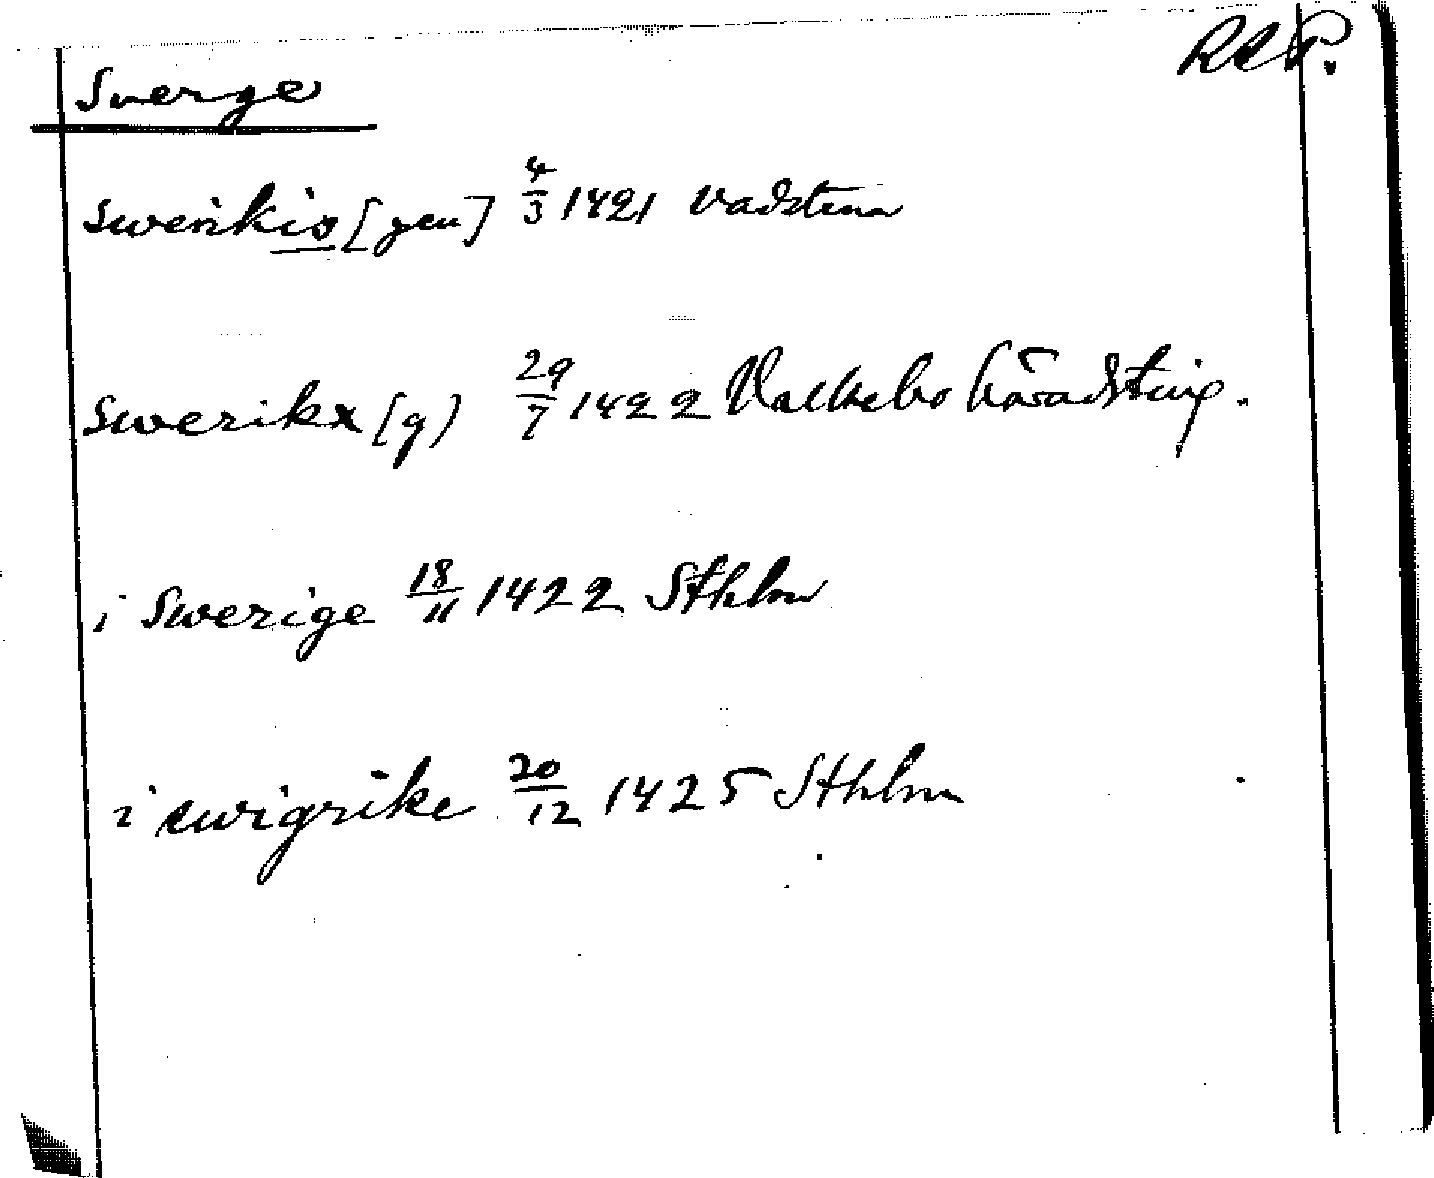 Sverge RAP.
swerikis [gen] 4/3 1421 Vadstena
swerikx (g) 29/7 1422 Valkebo häradsting.
i Swerige 18/11 1422 Sthlm
i swigrike 20/12 1425 Sthlm